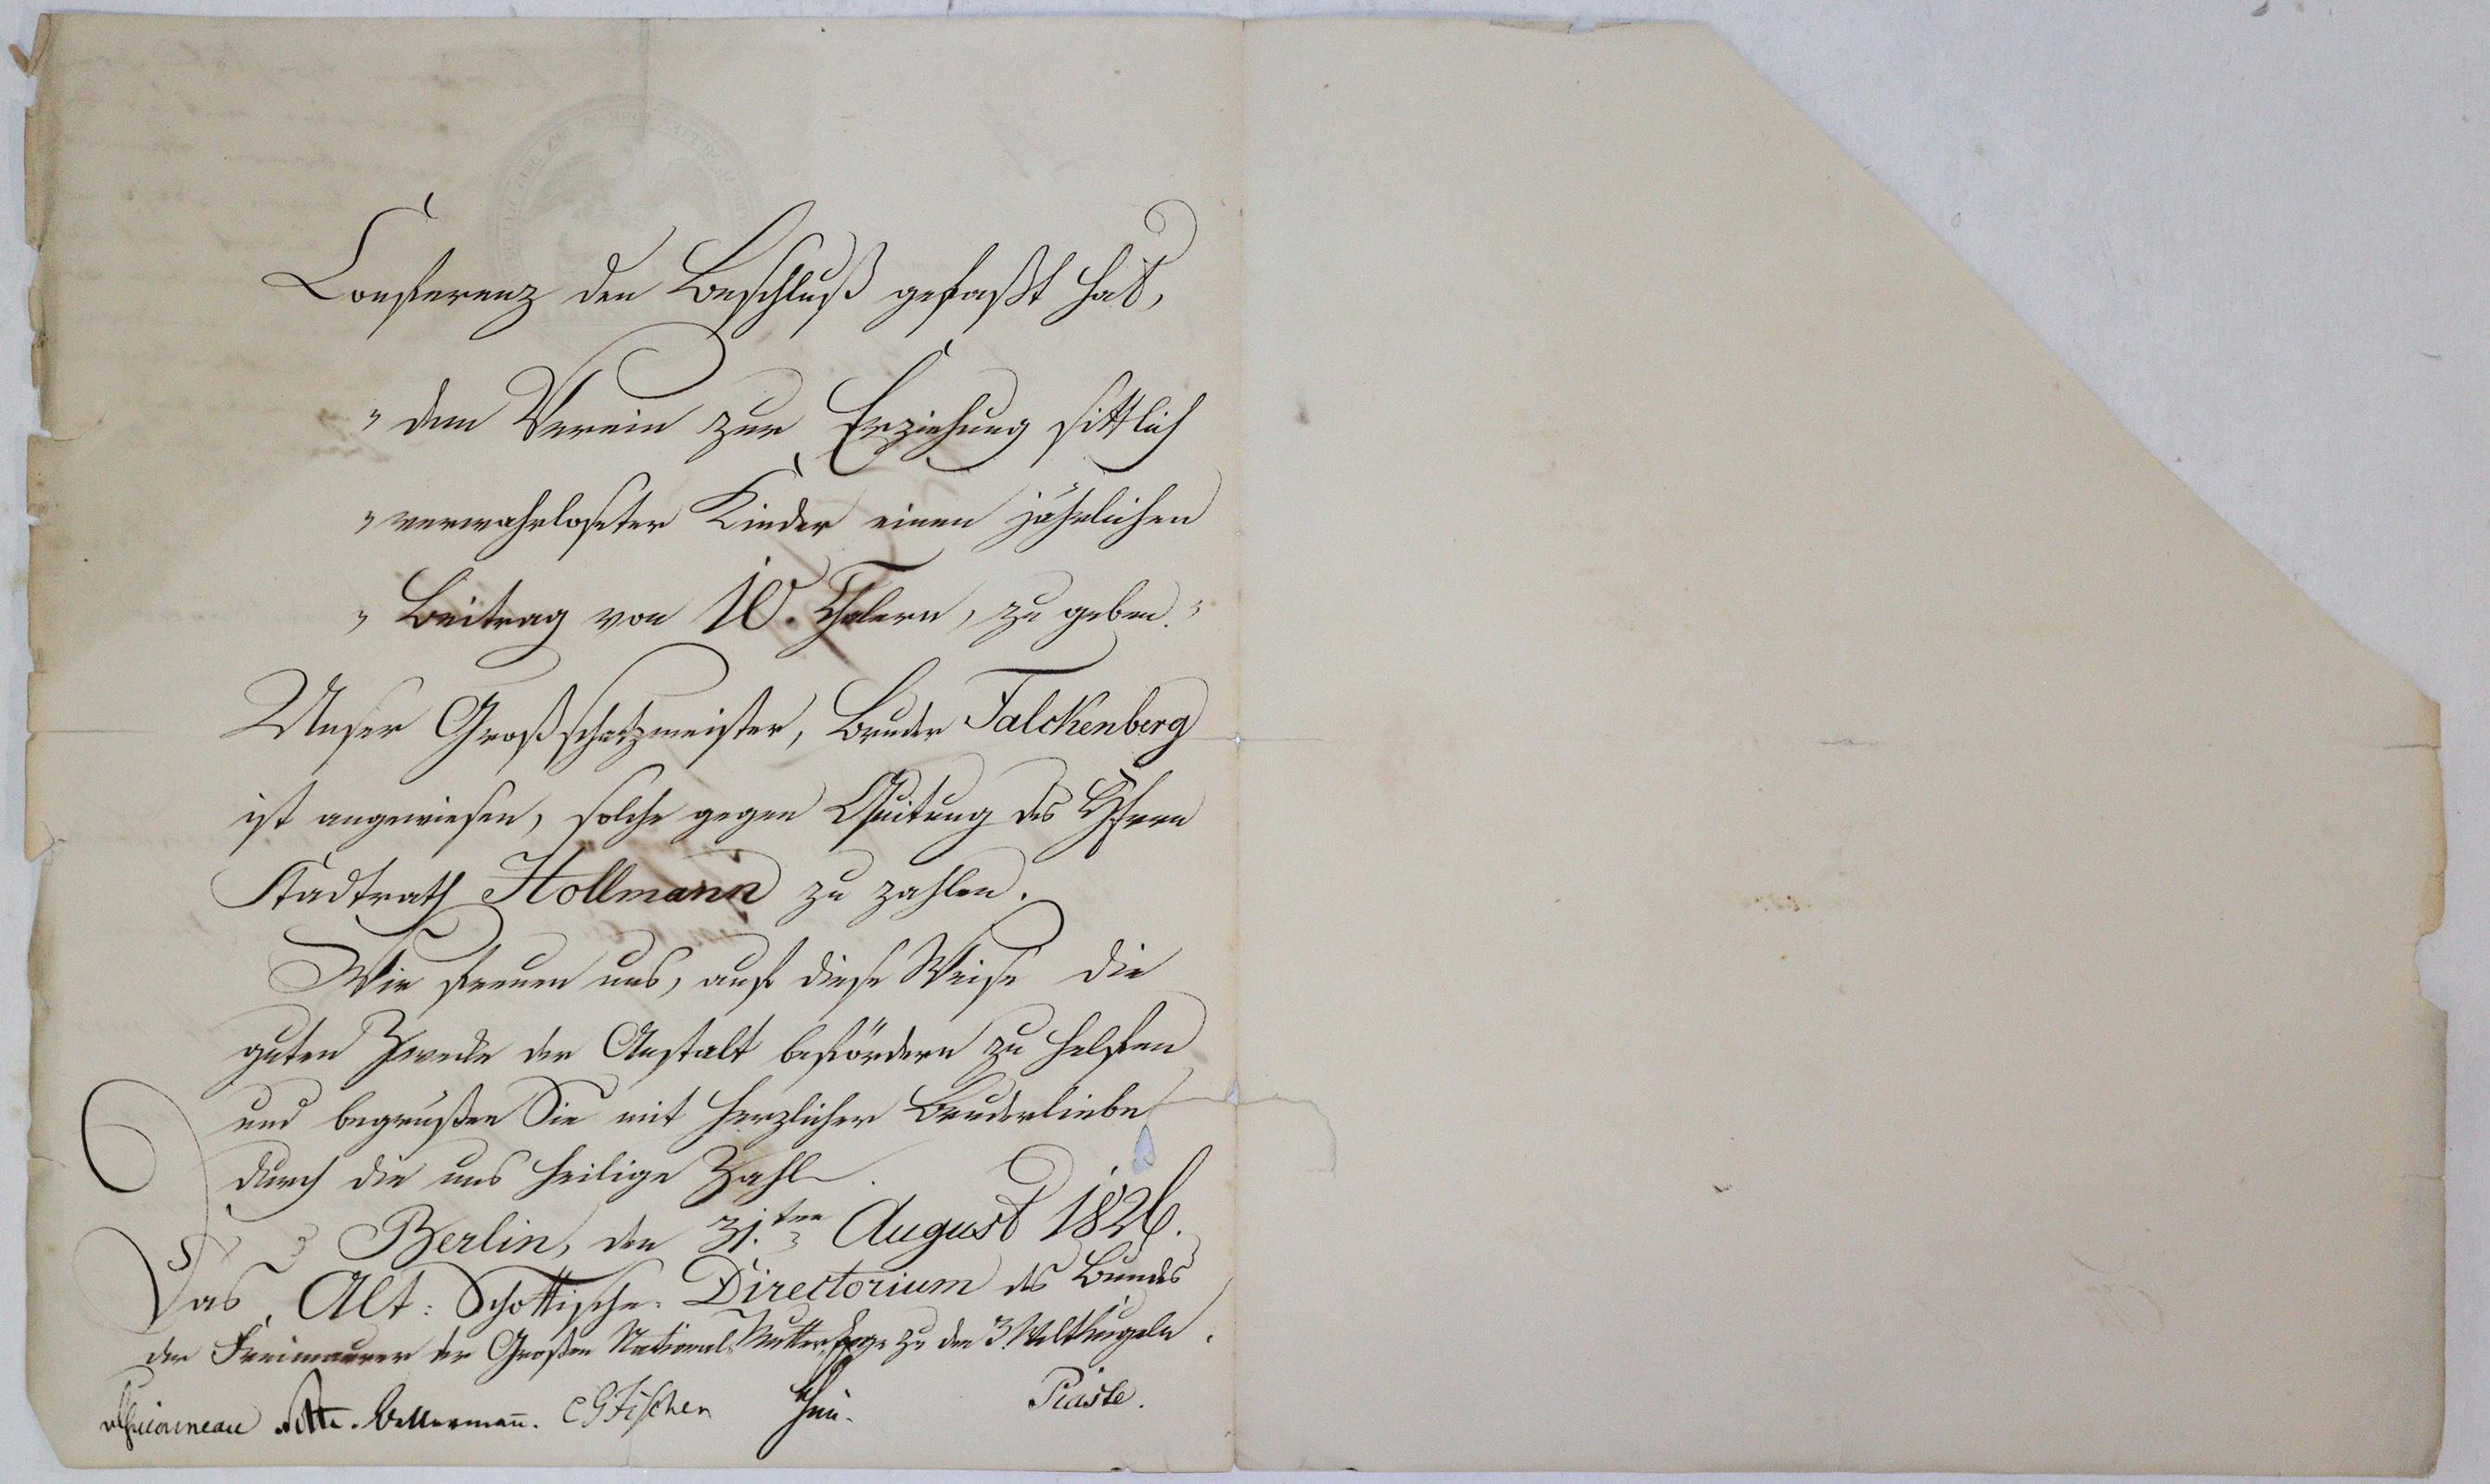 Conferenz den Beschluß gefaßt hat,
„dem Verein zur Erziehung sittlich
„verwahrloseter Kinder einen jährlichen
„Beitrag von 10. Thalern, zu geben.“
Unser Großschatzmeister, Bruder Falckenberg
ist angewiesen, solche gegen Quitung des Herrn
Stadtrath Hollmann zu zahlen.
Wir freuen uns, auf diese Weise die
guten Zwecke der Anstalt befördern zu helfen
und begrüßen Sie mit herzlicher Bruderliebe
durch die uns heilige Zahl.
Berlin, den 31.ten August 1826.
Das Alt: Schottische Directorium des Bundes
der Freimaurer der Großen National Mutterloge zu den 3 Weltkugeln.
Bellermann. CGFischer Piaste.